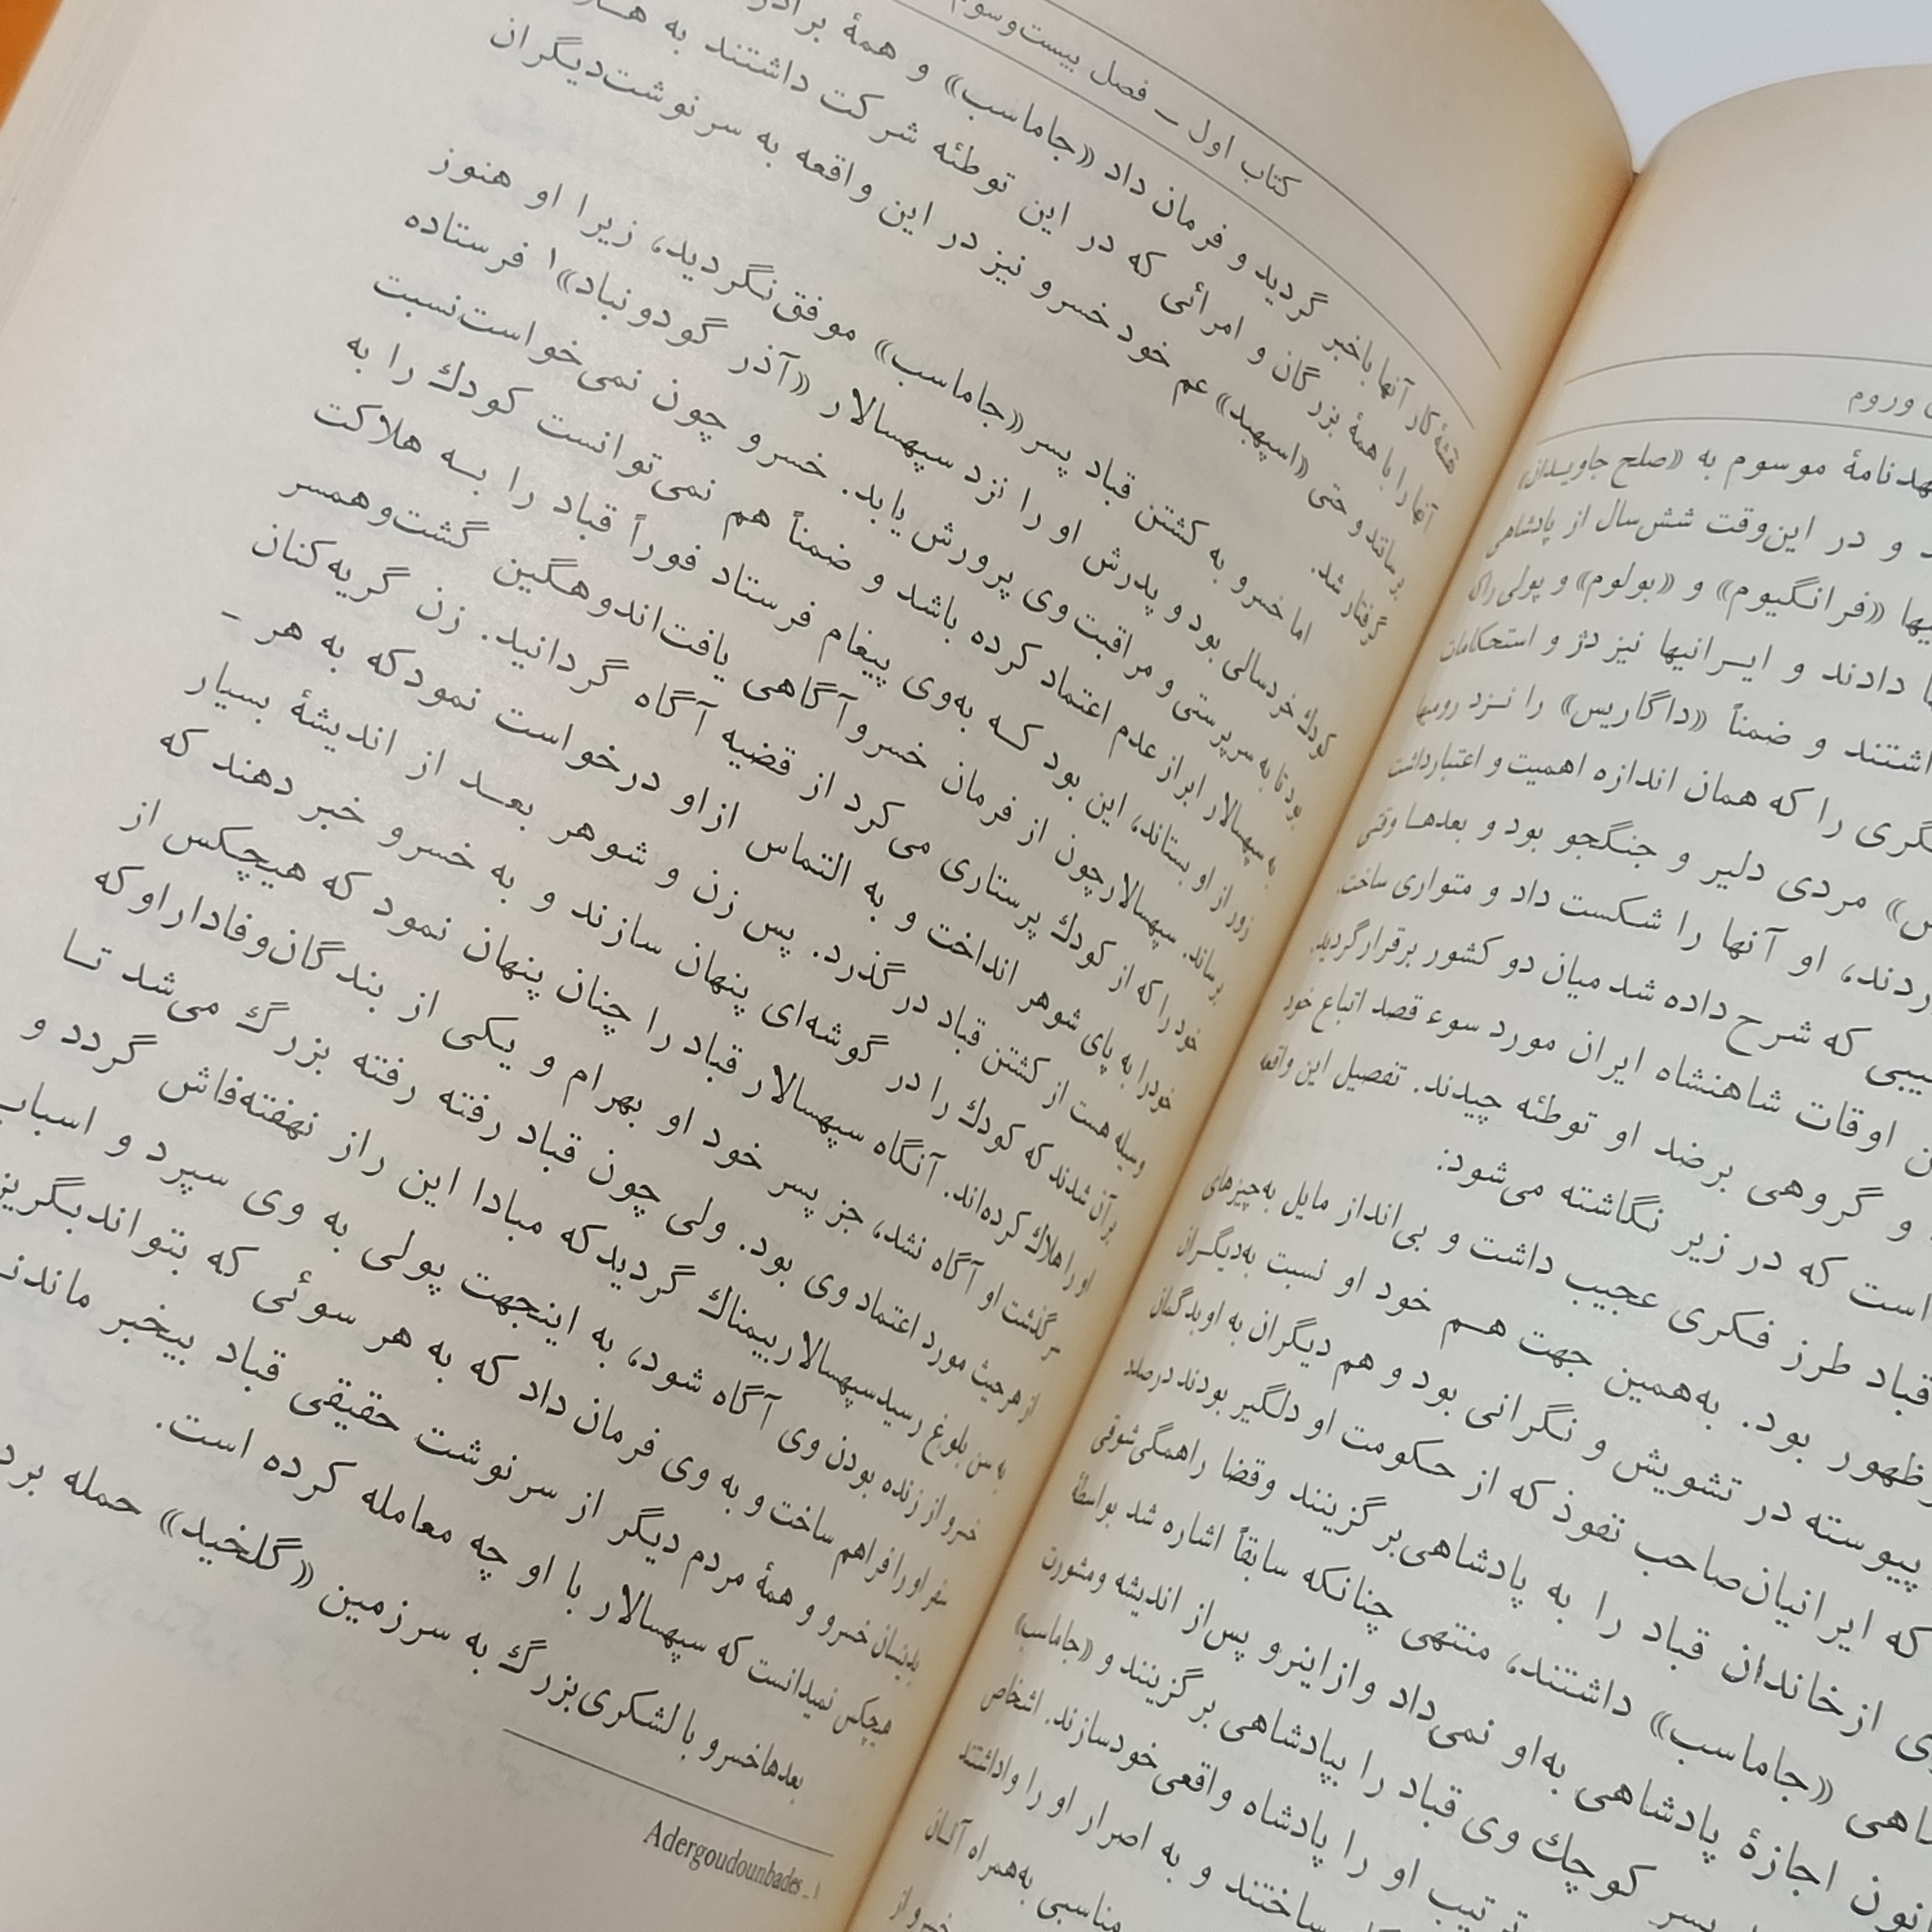 وروم
موسوم به «صلح جاویدان»
و در این‌وقت شش‌سال از پادشاهی
«فرانگیوم» و «بولوم» و پولی راکه
دادند و ایرانیها نیز دژ و استحکامات
و ضمناً «داگاریس» را نزد رومیها
را که همان اندازه اهمیت و اعتبارداشت
مردی دلیر و جنگجو بود و بعدها وقتی
او آنها را شکست داد و متواری ساخت.
که شرح داده شد میان دو کشور برقرارگردید.
اوقات شاهنشاه ایران مورد سوء قصد اتباع خود
و گروهی برضد او توطئه چیدند. تفصیل این واقعه
است که در زیر نگاشته می‌شود:
قباد طرز فکری عجیب داشت و بی‌انداز مایل به‌چیزهای
ظهور بود. به‌همین جهت هم خود او نسبت به‌دیگران
پیوسته در تشویش و نگرانی بود و هم دیگران به او بدگمان
که ایرانیان‌صاحب نفوذ که از حکومت او دلگیر بودند درصدد
ازخاندان قباد را به پادشاهی‌بر گزینند وقضا راهمگی‌شوقی
«جاماسب» داشتند، منتهی چنانکه سابقاً اشاره شد بواسطهٔ
اجازهٔ پادشاهی به‌او نمی‌داد وازاینرو پس‌از اندیشه ومشورت
کوچك وی قباد را بپادشاهی بر گزینند و «جاماسب»
او را پادشاه واقعی‌خودسازند. اشخاص
ساختند و به اصرار او را واداشتند
مناسبی به‌همراه آنان
خسرو از
کتاب اول – فصل بیست‌وسوم
کار آنها باخبر گردید و فرمان داد «جاماسب» و همهٔ
آنها را با همهٔ بزرگان و امرائی که در این توطئه شرکت داشتند به
برسانند و حتی «اسپهبد» عم خود خسرو نیز در این واقعه به سرنوشت‌دیگران
گرفتار شد.
اما خسرو به کشتن قباد پسر «جاماسب» موفق‌نگردید، زیرا او هنوز
کودك خردسالی بود و پدرش او را نزد سپهسالار «آذر گودونباد»۱ فرستاده
بود تا به سرپرستی و مراقبت وی پرورش یابد. خسرو چون نمی‌خواست‌نسبت
به سپهسالار ابراز عدم اعتماد کرده باشد و ضمناً هم نمی‌توانست کودك را به
زور از او بستاند، این بود کسه به‌وی پیغام فرستاد فوراً قباد را بسه هلاکت
برساند. سپهسالارچون از فرمان خسروآگاهی یافت‌اندوهگین گشت‌وهمسر
خود را که از کودك پرستاری می‌کرد از قضیه آگاه گردانید. زن گریه‌کنان
خودرا به پای شوهر انداخت و به التماس ازاو درخواست نمودکه به هر -
وسیله هست از کشتن قباد در گذرد. پس زن و شوهر بعد از اندیشهٔ بسیار
برآن شدند که کودك را در گوشه‌ای پنهان سازند و به خسرو خبر دهند که
او را هلاك کرده‌اند. آنگاه سپهسالار قباد را چنان پنهان نمود که هیچکس از
سرگذشت او آگاه نشد، جز پسر خود او بهرام و یکی از بندگان‌وفاداراوکه
از هر حیث مورد اعتماد وی بود. ولی چون قباد رفته رفته بزرگ می‌شد تا
به سن بلوغ رسید سپهسالاربیمناك گردیدکه مبادا این راز نهفته‌فاش گردد و
خسرو از زنده بودن وی آگاه شود، به اینجهت پولی به وی سپرد و اسباب
سفر او را فراهم ساخت و به وی فرمان داد که به هر سوئی که بتواند
بدینسان خسرو و همهٔ مردم دیگر از سرنوشت حقیقی قباد بیخبر
هیچکس نمیدانست که سپهسالار با او چه معامله کرده است.
بعدها خسرو با لشکری بزرگ به سرزمین «گلخید» حمله برد
۱ـ Adergoudounbades